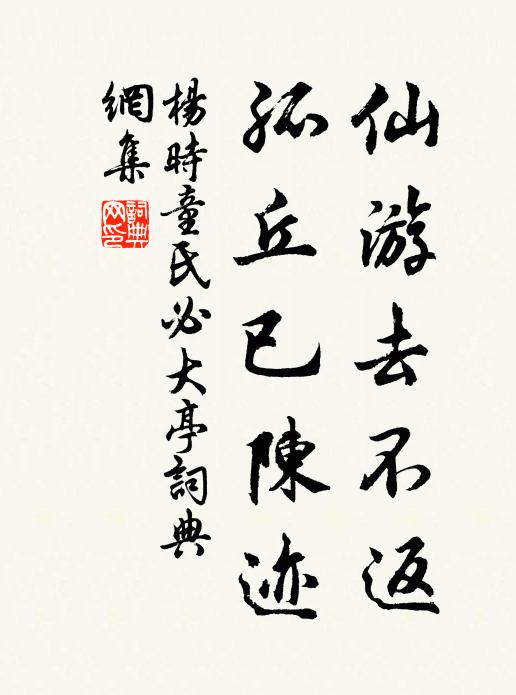 仙游去不返
孤丘已陳迹
楊時童氏必大亭詞典
網集
詞典
网印